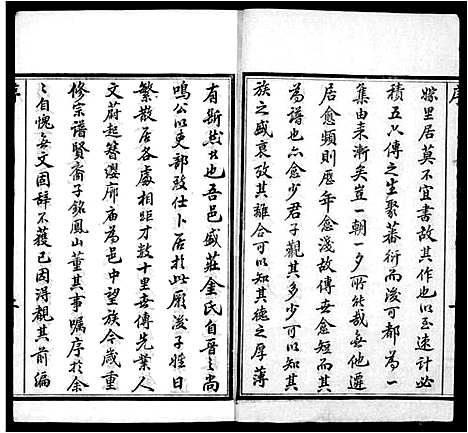 序
嫁里居莫不宜書故其作也以至速計必
積五六傳之生聚蕃衍而後可都為一
集由来漸矣豈一朝一夕所能哉無他遷
居愈頻則歷年愈淺故傳世愈短而其
為譜也亦愈少君子觀其多少可以知其
族之盛衰攷其離合可以知其德之厚薄
有斯然也吾邑盛莊金氏自晉之尚
鳴公以吏部致仕卜居於此厥後子姓日
繁散居各處相距才數十里世傳先業人
文蔚起簪纓廊廟為邑中望族今歲重
修宗譜賢裔子銘鳳山董其事囑序於余
余自愧無文固辞不獲已因得觀其前編
序